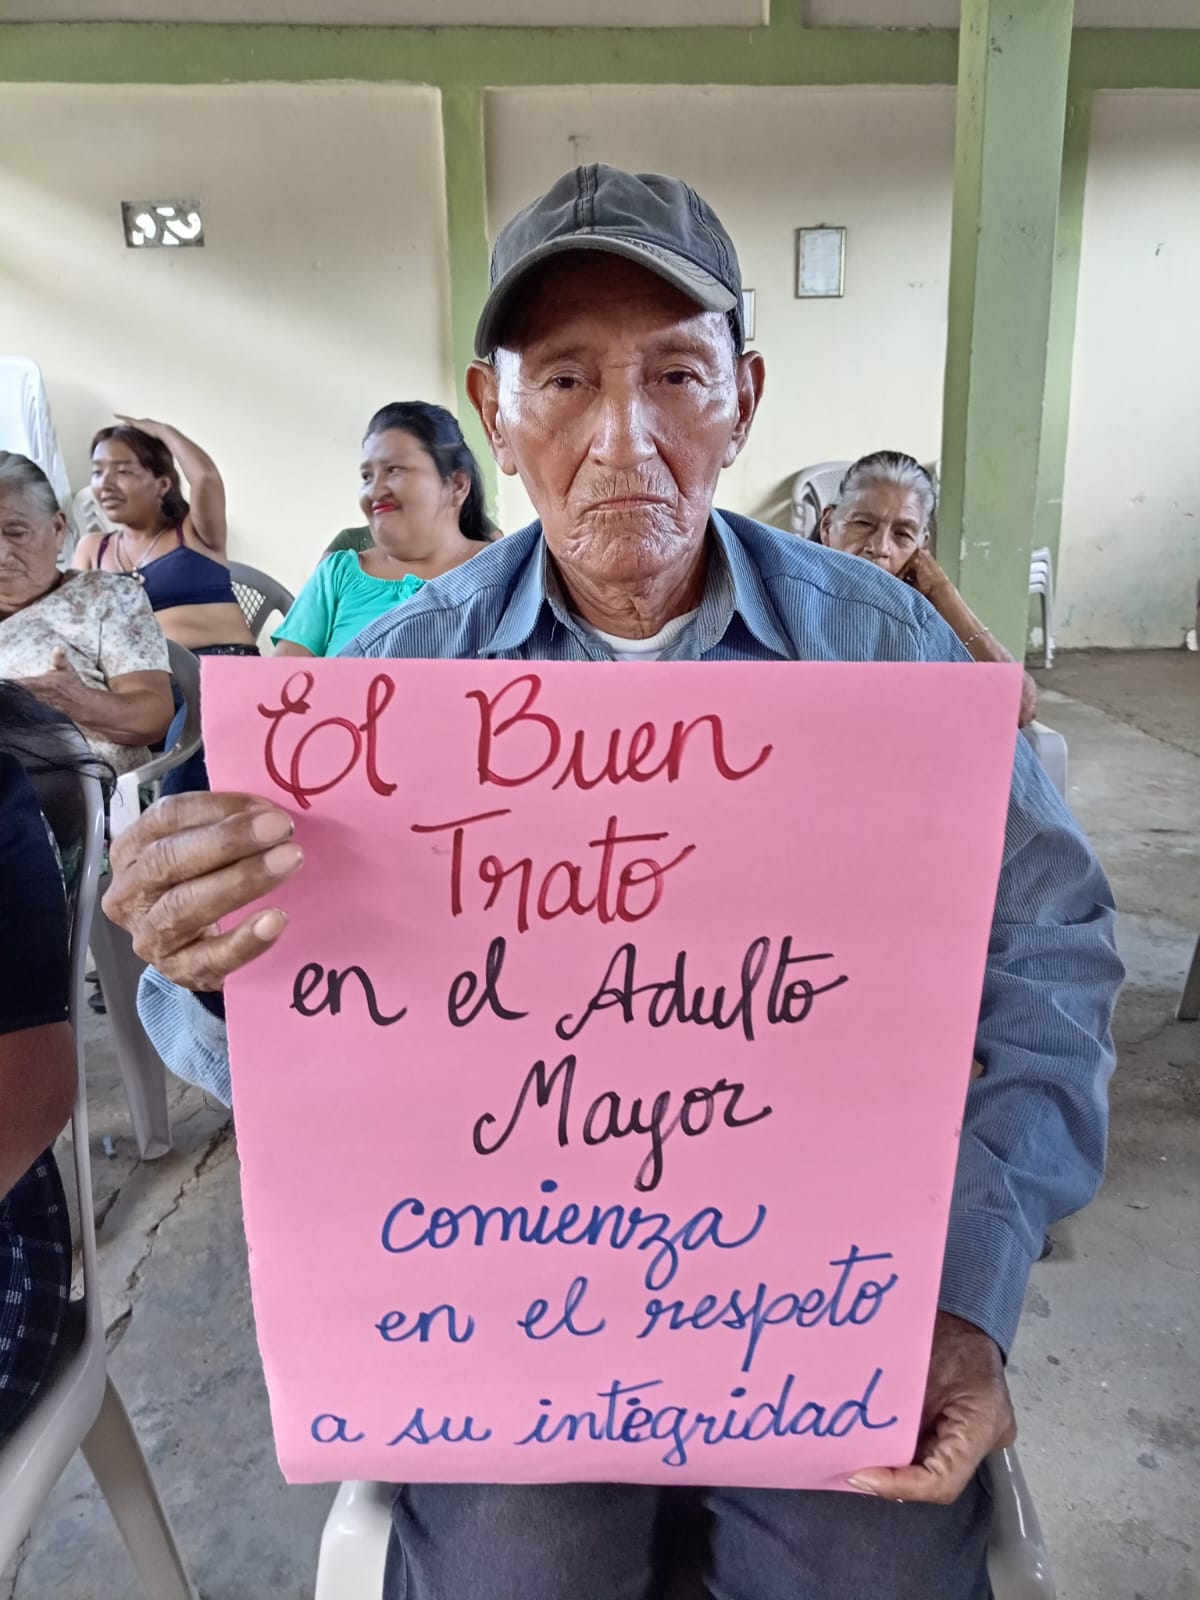 El Buen
Trato
en el Adulto
Mayor
comienza
en el respeto
a su integridad